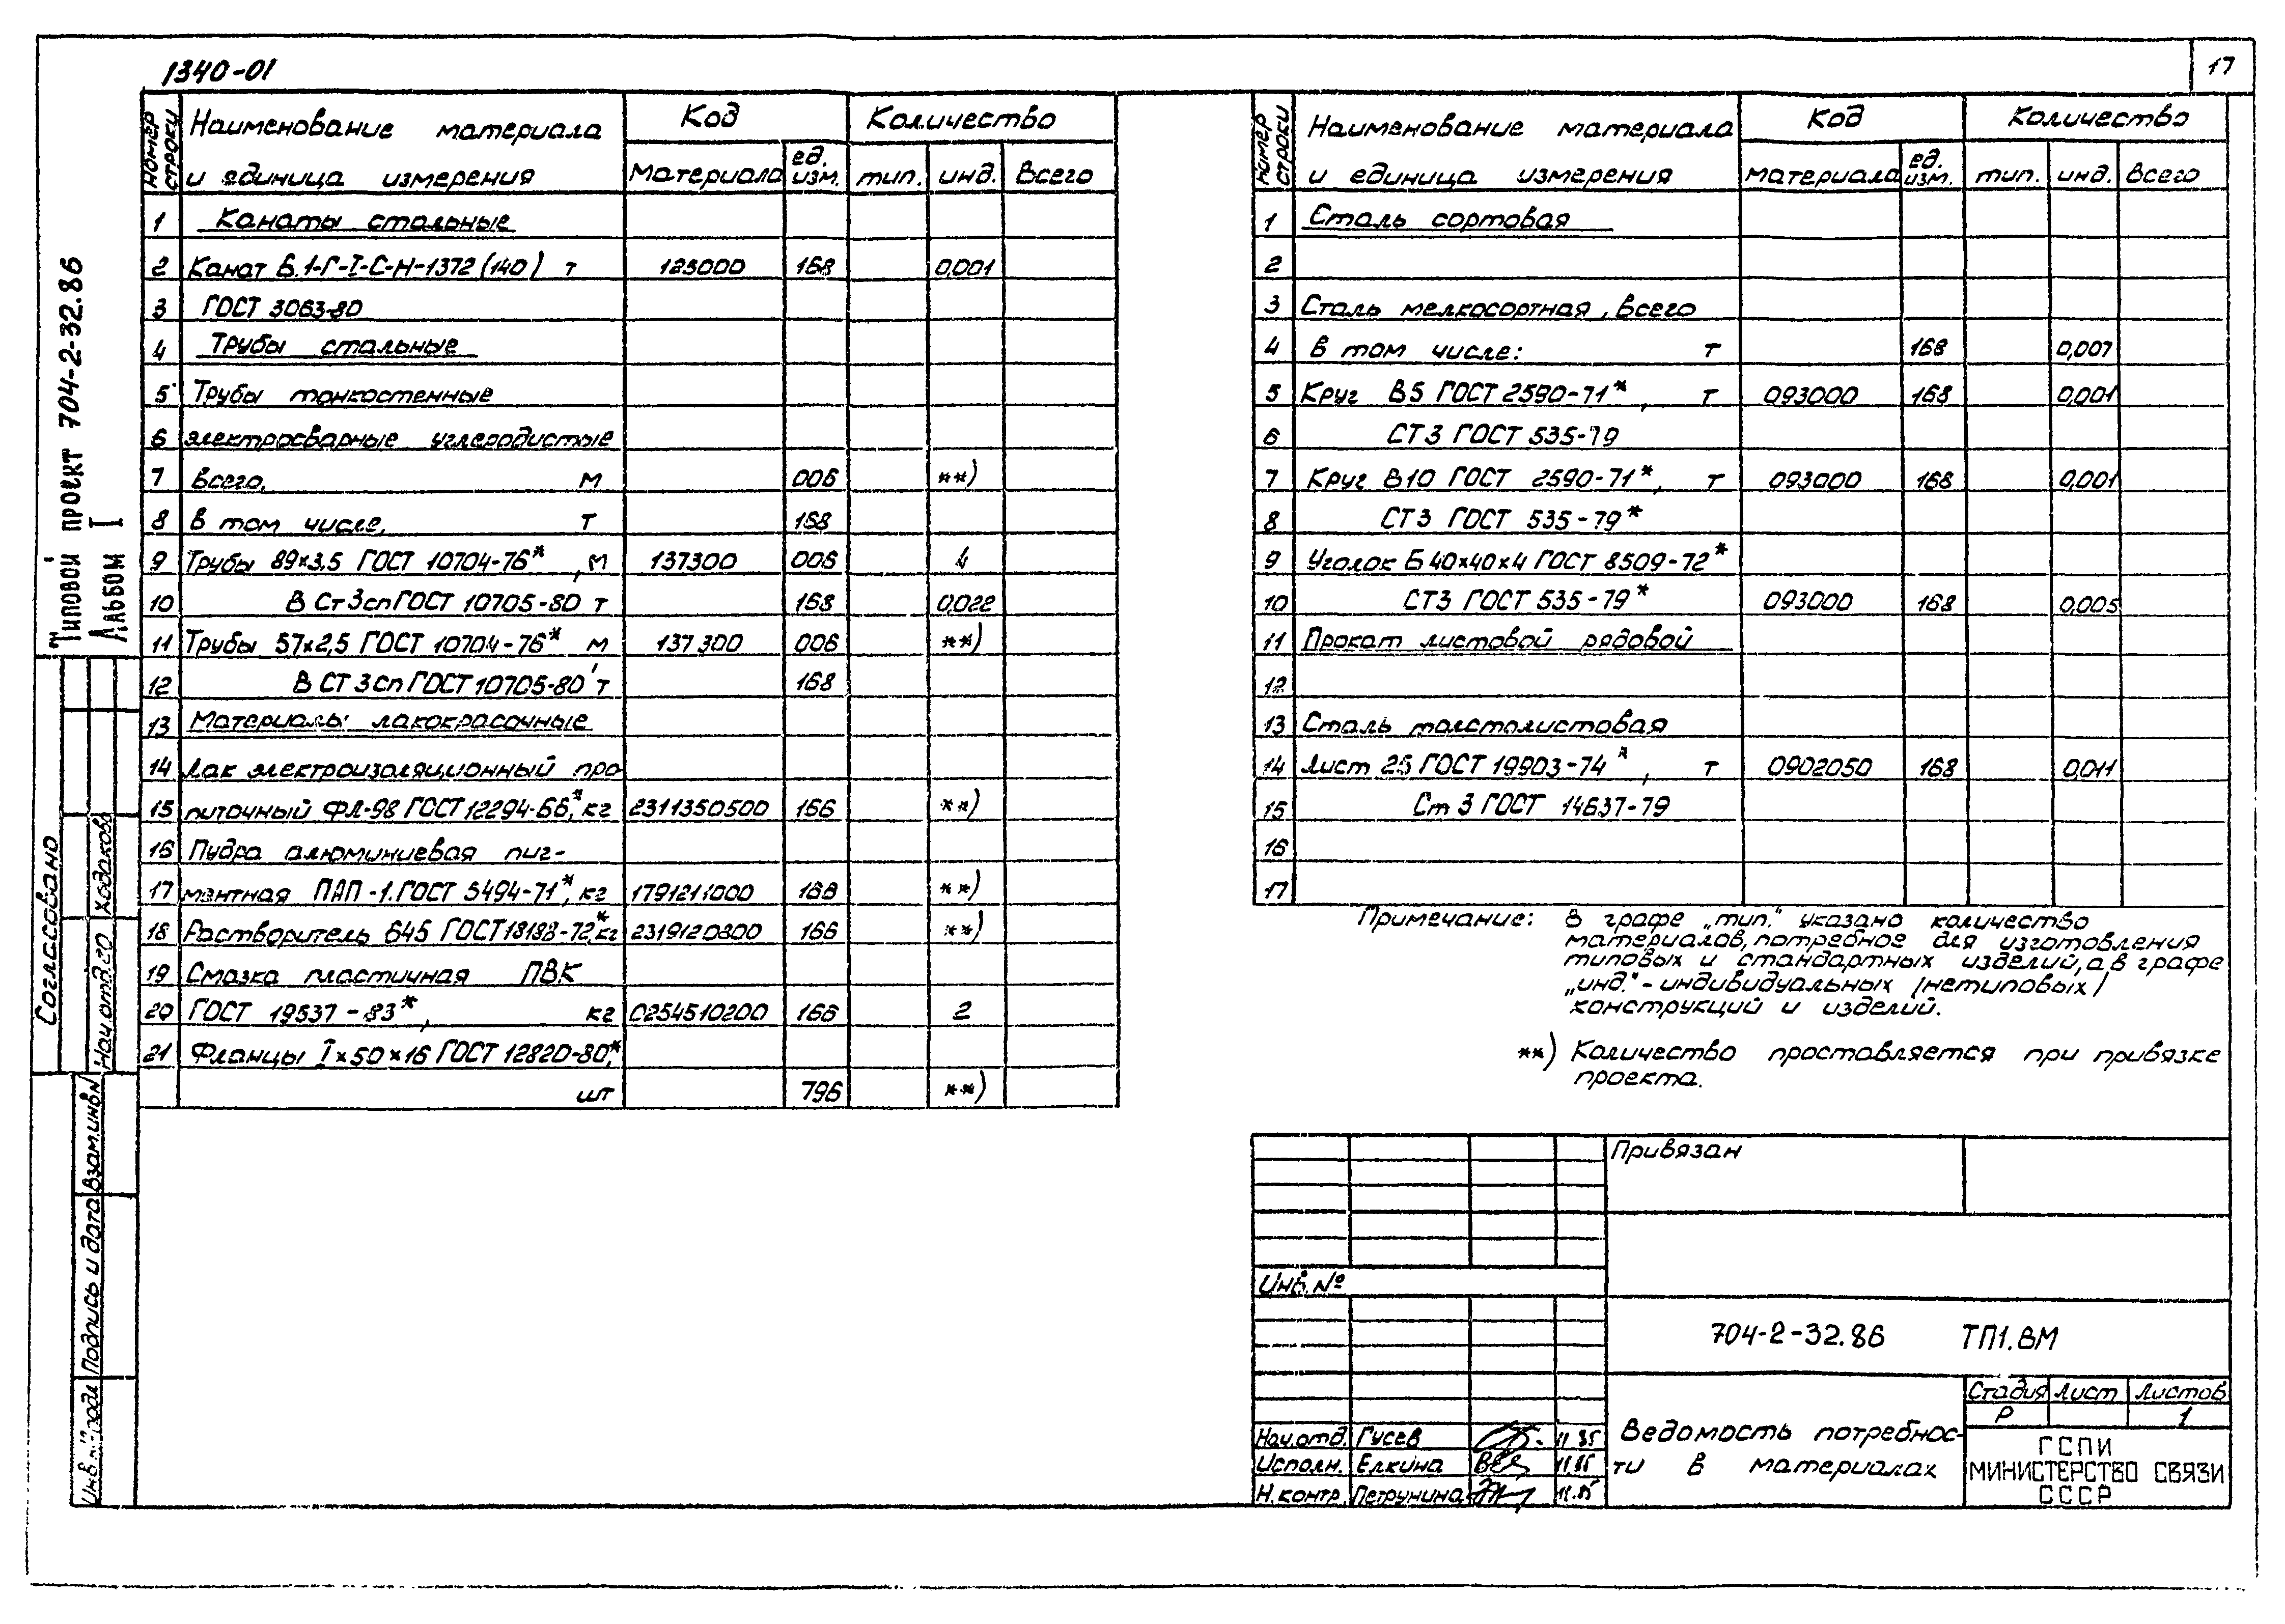 1340-01
17
Типовой проект 704-2-32.86
Альбом I
Номер строки Наименование материала и единица измерения Код Количество
Материала ед. изм. тип. инд. Всего
1 Канаты стальные
2 Канат 6.1-Г-I-С-Н-1372 (140) т 125000 168 0,001
3 ГОСТ 3063-80
4 Трубы стальные
5 Трубы тонкостенные
6 электросварные углеродистые
7 Всего, м 006 **)
8 в том числе, т 168
9 Трубы 89×3,5 ГОСТ 10704-76*, м 137300 006
10 В Ст3сп ГОСТ 10705-80 т 168 0,022
11 Трубы 57×2,5 ГОСТ 10704-76* м 137300 006 **)
12 В СТ 3сп ГОСТ 10705-80 т 168
13 Материалы лакокрасочные
14 Лак электроизоляционный про
15 питочный ФЛ-98 ГОСТ 12294-66*, кг 2311350500 166 **)
16 Пудра алюминиевая пиг-
17 ментная ПАП-1. ГОСТ 5494-71*, кг 1791211000 168 **)
18 Растворитель 645 ГОСТ 18188-72*, кг 2319120800 166 **)
19 Смазка пластичная ПВК
20 ГОСТ 19537-83*, кг 0254510200 166 2
21 Фланцы I×50×16 ГОСТ 12820-80*,
шт 796 **)
Номер строки Наименование материала и единица измерения Код Количество
материала ед. изм. тип. инд. Всего
1 Сталь сортовая
2
3 Сталь мелкосортная, Всего
4 в том числе: т 168 0,007
5 Круг В5 ГОСТ 2590-71*, т 093000 168 0,001
6 СТ3 ГОСТ 535-79
7 Круг В10 ГОСТ 2590-71*, т 093000 168 0,001
8 СТ3 ГОСТ 535-79*
9 Уголок Б 40×40×4 ГОСТ 8509-72*
10 СТ3 ГОСТ 535-79* 093000 168 0,005
11 Прокат листовой рядовой
12
13 Сталь толстолистовая
14 Лист 25 ГОСТ 19903-74*, т 0902050 168 0,011
15 Ст 3 ГОСТ 14637-79
16
17
Примечание: В графе „тип." указано количество
материалов, потребное для изготовления
типовых и стандартных изделий, а в графе
„инд."- индивидуальных /нетиповых/
конструкций и изделий.
**) Количество проставляется при привязке
проекта.
Согласовано
Нач.отд.го Ходаков
Взам.инв№
Подпись и дата
Инв.№подл
Привязан
Инв.№
704-2-32.86 ТП1.ВМ
Стадия Лист Листов
Р 1
Нач.отд. Гусев 11.85
Исполн. Елкина 11.85
Н.контр. Петрунина 11.85
Ведомость потребнос-
ти в материалах
ГСПИ
МИНИСТЕРСТВО СВЯЗИ
СССР